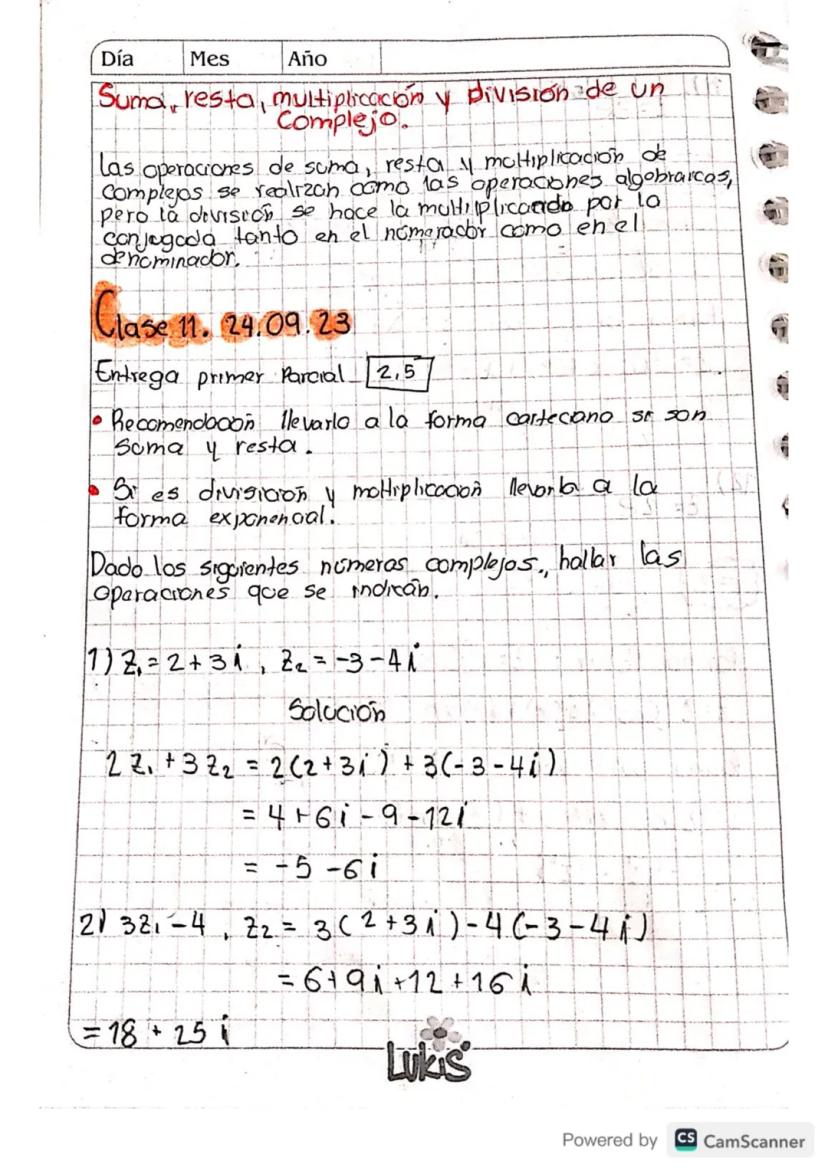 Día Mes Año
Suma, resta, multiplicación y división de un
complejo.
las operaciones de suma, resta y multiplicación de
complejos se realizan como las operaciones algebraicas,
pero la división se hace la multiplicando por lo
conjugada tanto en el numerador como en el
denominador.
Clase 11. 24.09.23
Entrega primer Parcial 2,5
• Recomendación llevarlo a la forma carteciano si son
suma y resta.
• Si es división y multiplicación llevarla a la
forma exponencial.
Dado los siguientes números complejos., hallar las
oparaciones que se indican.
1) Z₁ = 2 + 3i , Z₂ = -3 - 4i
Solución
2 Z₁ + 3 Z₂ = 2(2+3i) + 3(-3-4i)
= 4 + 6i - 9 - 12i
= -5 - 6i
2) 3Z₁ - 4 , Z₂ = 3(2+3i) - 4(-3-4i)
= 6+9i+12+16i
= 18 + 25i
LUKIS
Powered by CS CamScanner